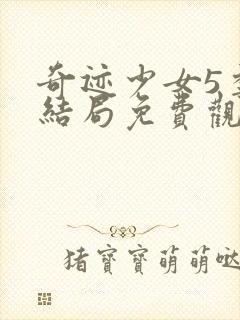 奇迹少女5
結局免費觀
猪寶寶萌萌哒